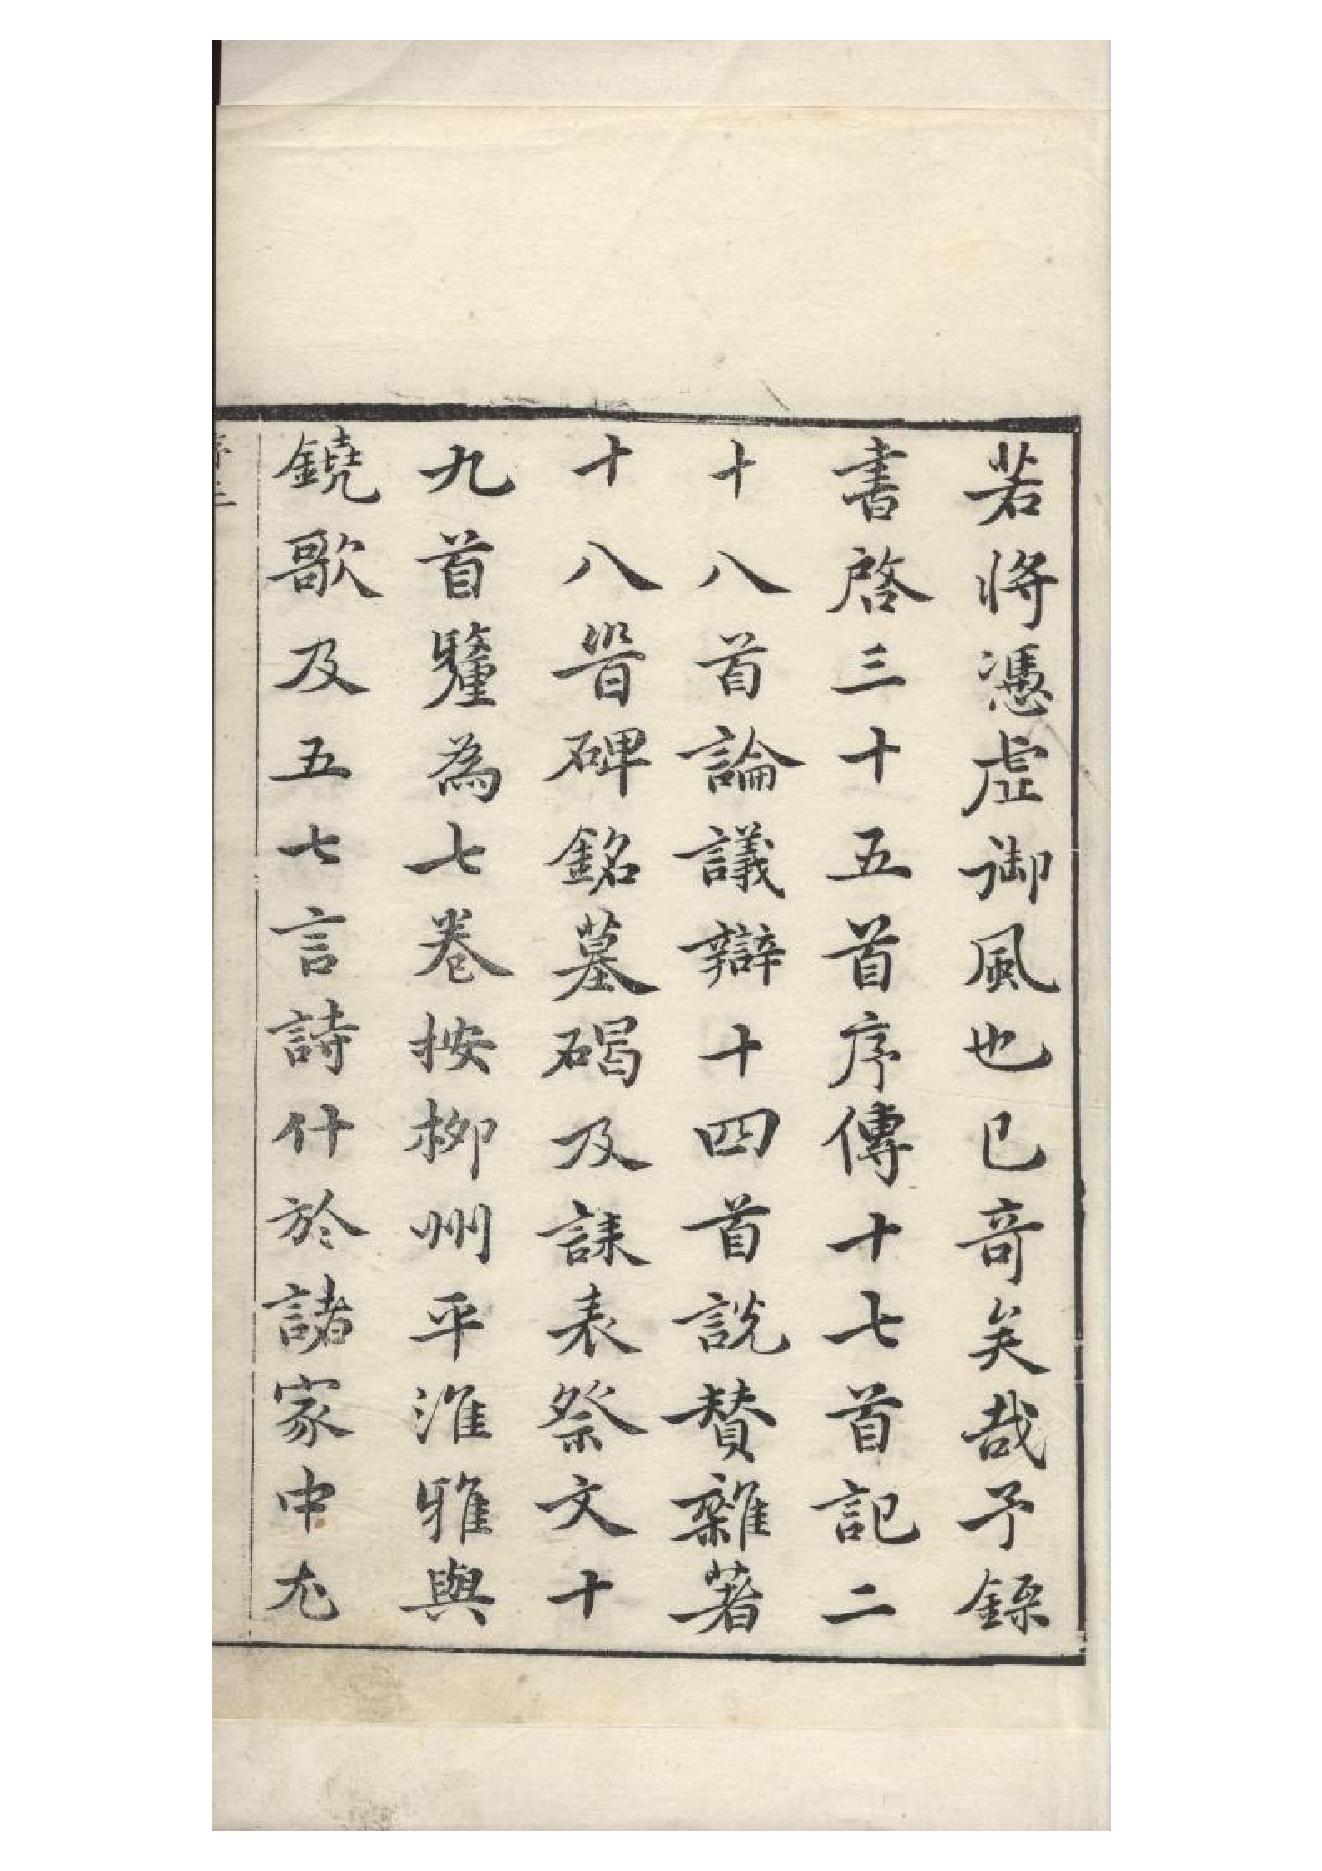 若將慿虛御風也已奇矣哉予録
書啓三十五首序傳十七首記二
十八首論議辯十四首説賛雜著
十八皆碑銘墓碣及誄表祭文十
九首釐為七卷按柳州平淮雅與
鐃歌及五七言詩什於諸家中尤